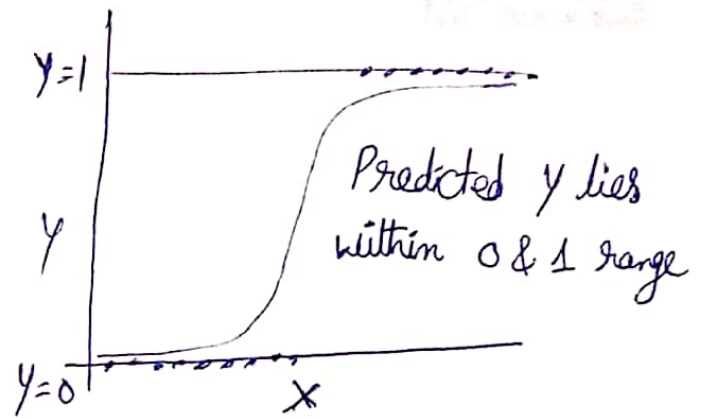 Y=1
Y
Predicted y lies
within 0 & 1 range
Y=0
X